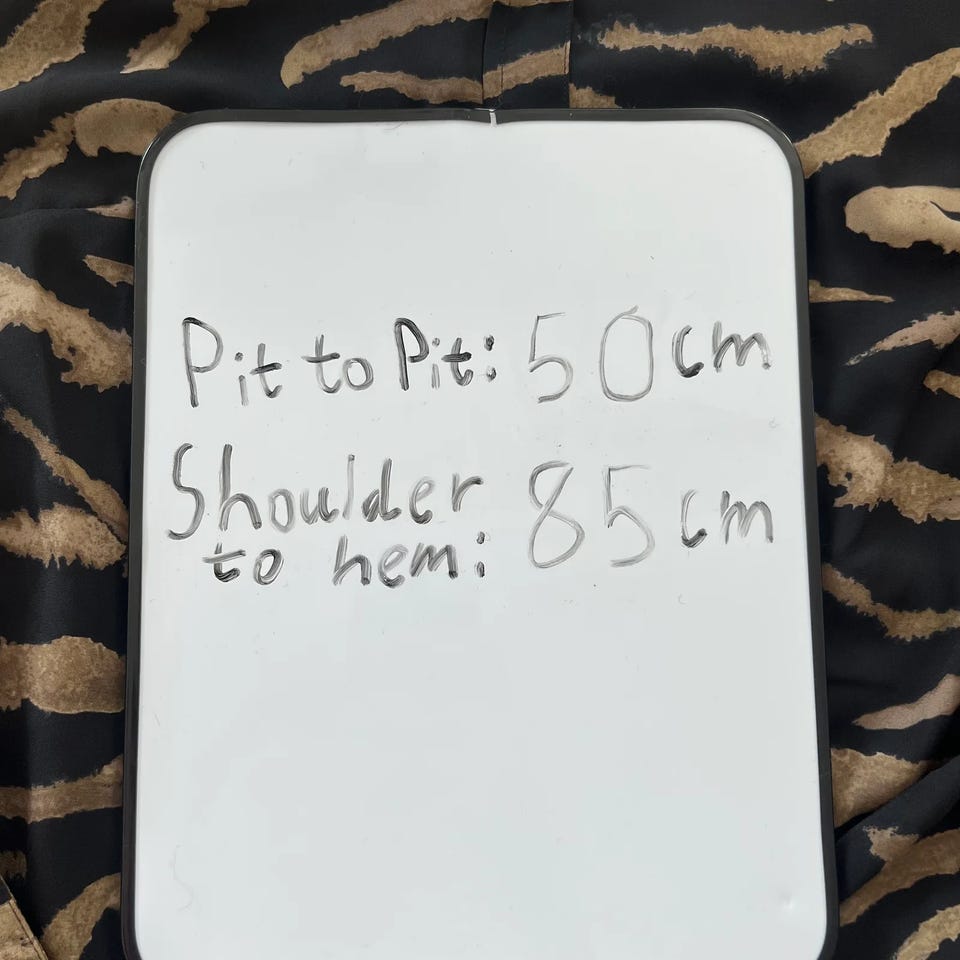 Pit to Pit: 50 cm
Shoulder
to hem: 85 cm